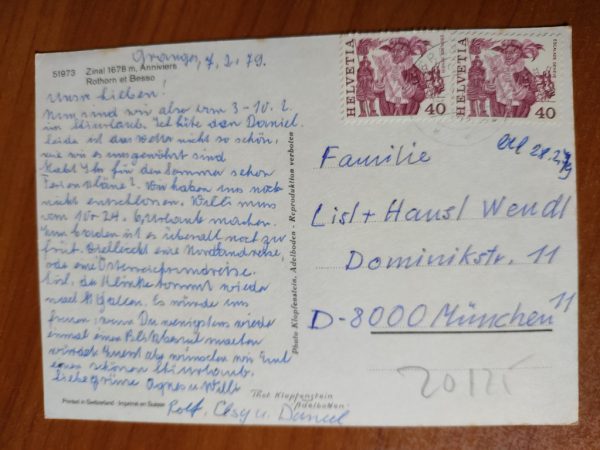 51973 Zinal 1678 m, Anniviers
Rothorn et Besso
7.2.79.
Unsre Lieben!
Nun sind wir also vom 3-10.2.
im Skiurlaub. Ich hüte den Daniel.
leider ist das Wetter nicht so schön,
wie wir es ungewöhrt sind
Habt Ihr für den Sommer schon
Ferienpläne? Wir haben uns noch
nicht entschlossen. Willi muss
vom 10-24. 6. Urlaub machen.
Zum baden ist es überall noch zu
früh. Vielleicht eine Nordlandreise
oder eine
Lisl, die kommt wieder
nach St Gallen. Es würde uns
freuen, wenn Du wenigstens wieder
einmal einen machen
würdest wünschen wir Euch
einen schönen Skiurlaub.
Liebe grüsse Agnes u Willi
Rolf, Elsy u. Daniel
Printed in Switzerland - Imprimé en Suisse
Photo Klopfenstein, Adelboden - Reproduktion verboten
Phot. Klopfenstein
Adelboden
HELVETIA
40
HELVETIA
40
Familie
Lisl + Hansl Wendl
Dominikstr. 11
D-8000 München 11